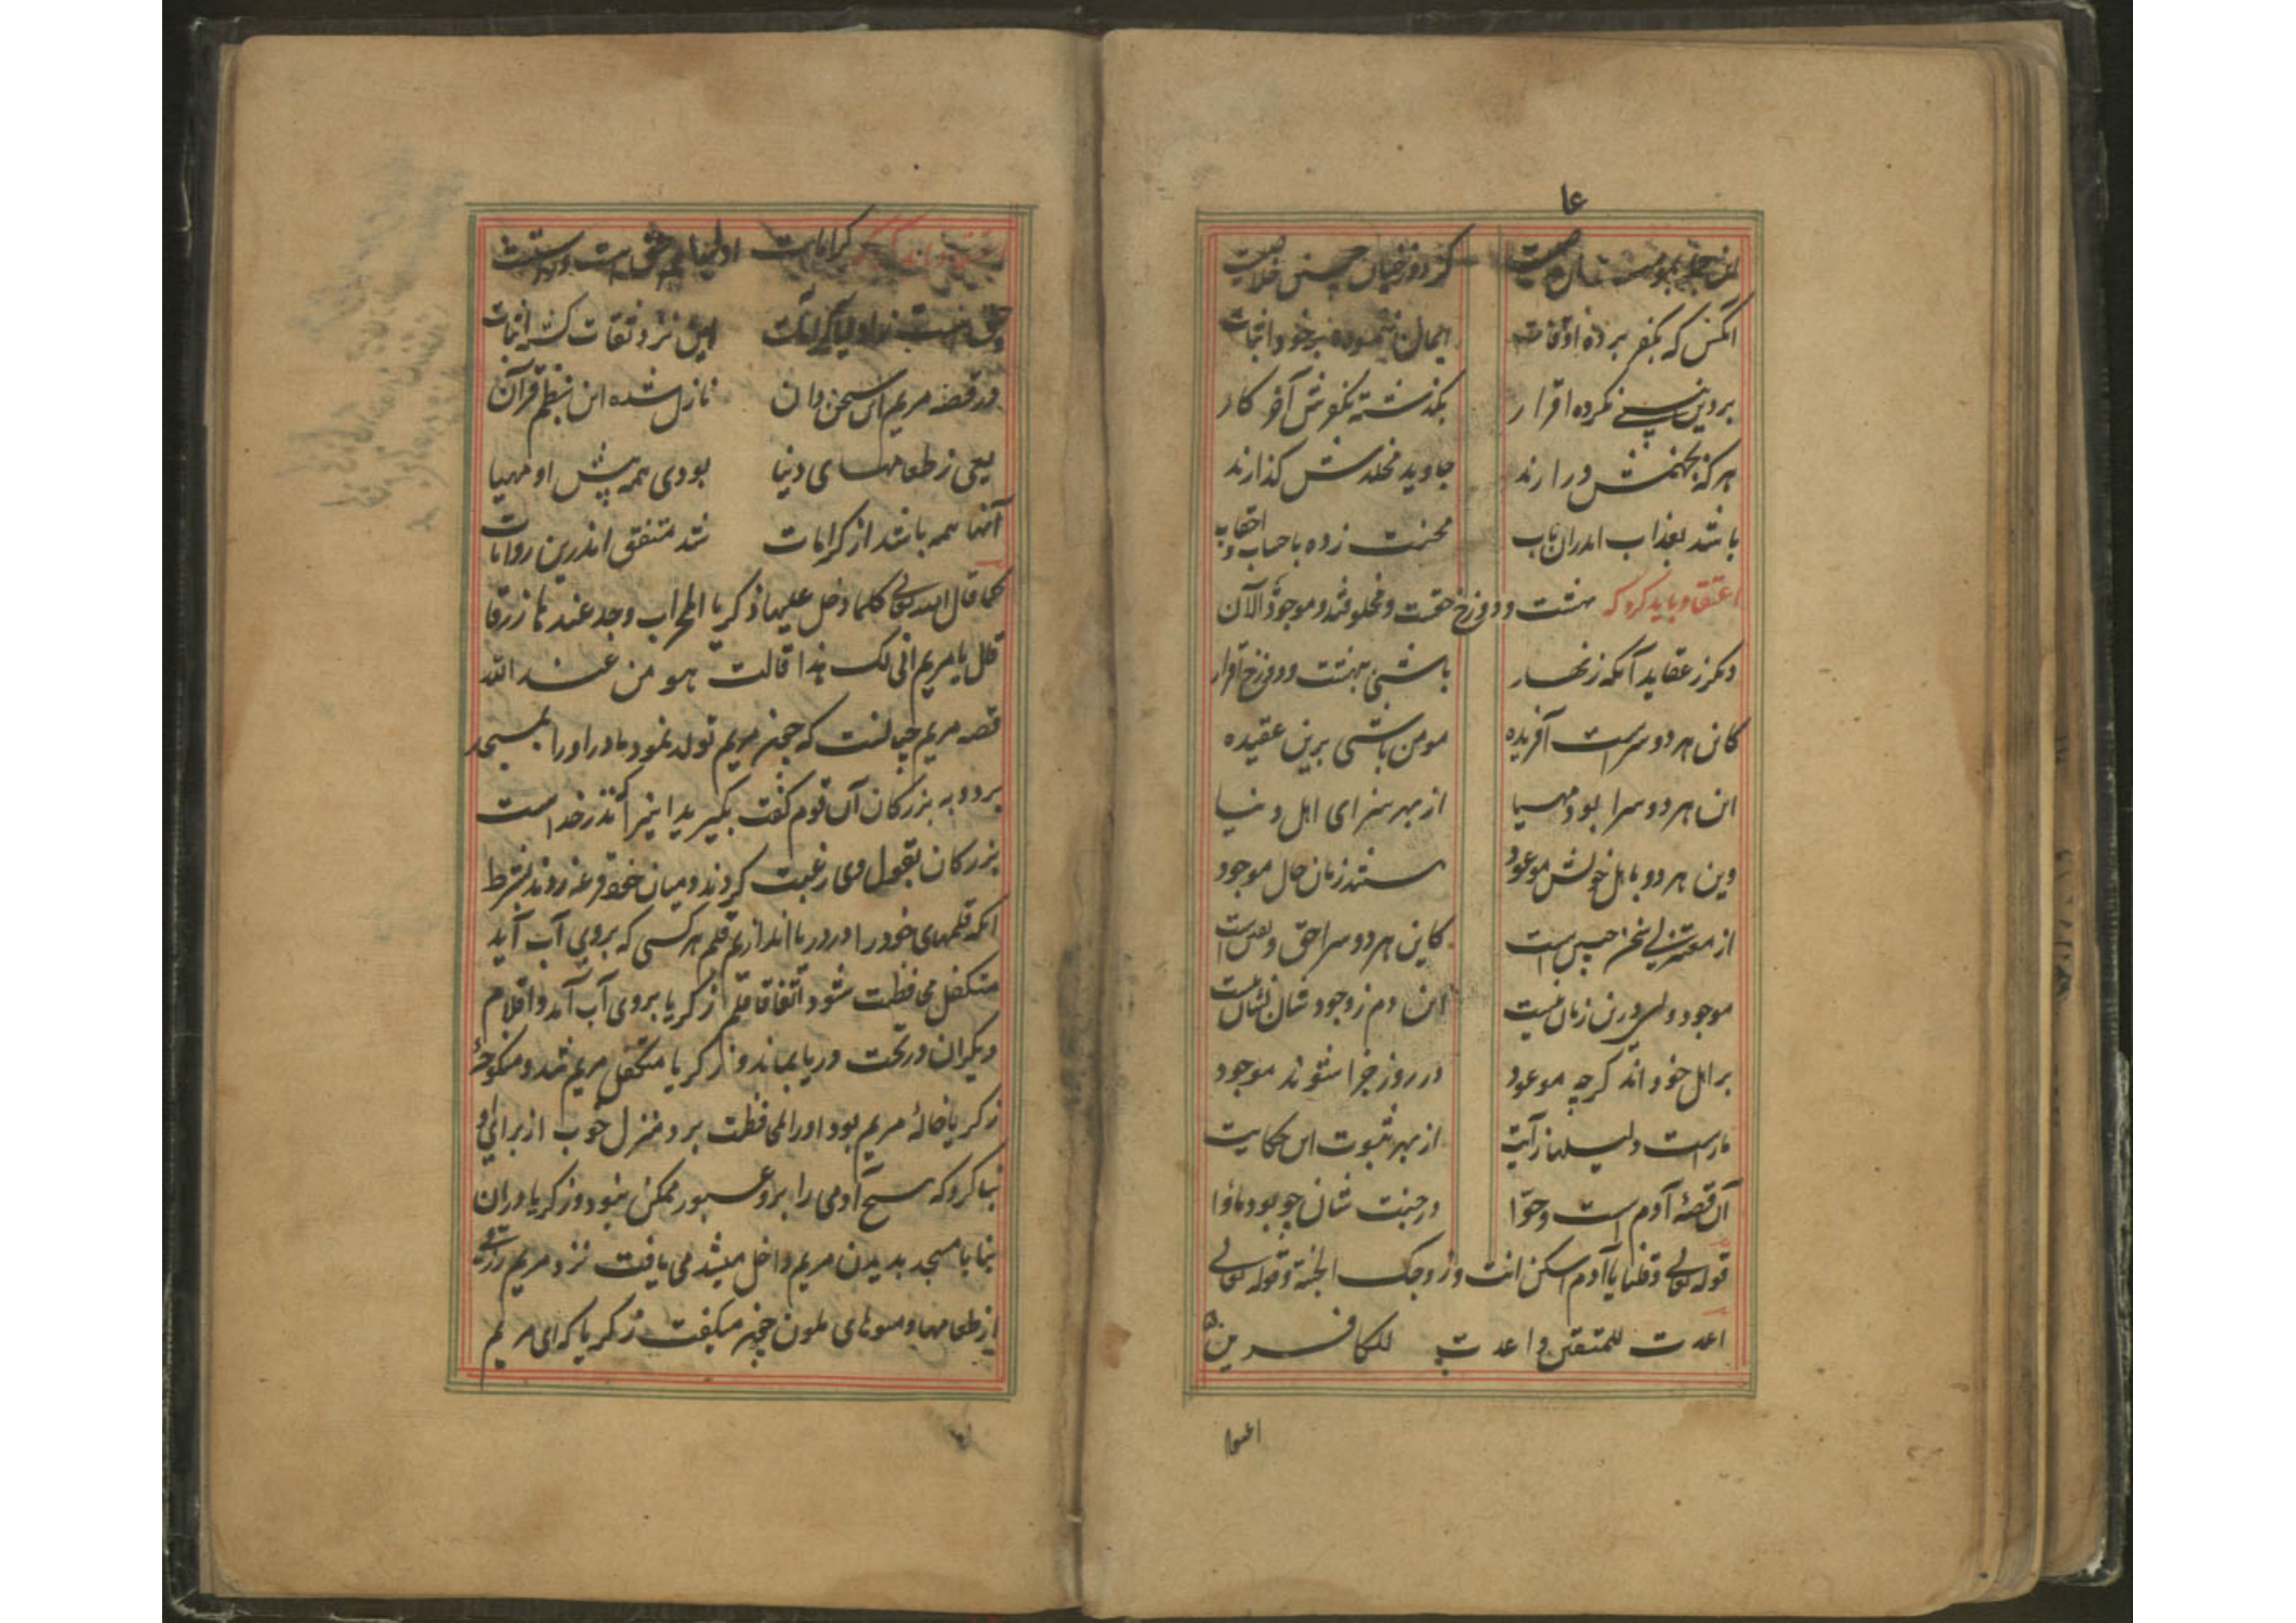 کز دوزخیان چنین خلاصیت
آنکس که بکفر برده اوقات ایمان ننموده بر خود اثبات
بر دین نبی نکرده اقرار بگذشته بکفرش آخر کار
هرکه بجهنمش درارند جاوید مخلدش گذارند
باشد بعذاب اندران باب محنت زده باحساب و احقاب
اعتقاد باید کرد که بهشت و دوزخ حقست و مخلوقند و موجود الآن
دیگر ز عقاید آنکه زنهار باشی ببهشت و دوزخ اقرار
کاین هر دو سراست آفریده مومن باشی برین عقیده
این هر دو سرا بود مهیا از بهر سزای اهل دنیا
وین هر دو باهل خویش موعود هستند زمان حال موجود
از معتزلی سخن چنین است کاین هر دو سرا حق و یقین است
موجود ولی درین زمان نیست این دم ز وجود شان نشان نیست
بر اهل خود اند گرچه موعود در روز جزا شوند موجود
ماراست دلیلها ز آیت از بهر ثبوت این حکایت
آن قصهٔ آدم است و حوّا در جنت شان چو بود ماوا
قوله تعالی وقلنا یا آدم اسکن انت وزوجک الجنة وقوله تعالی
اعدت للمتقین واعدت للکافرین
اعتقا
کرامات اولیا حق است و درست
حق است ز اولیا کرامات این نزد ثقات گشته اثبات
در قصه مریم ای سخن دان نازل شده این بنظم قرآن
یعنی ز طعامهای دنیا بودی همه پیش او مهیا
آنها همه باشد از کرامات شد متفق اندرین روایات
کما قال الله تعالی کلما دخل علیها زکریا المحراب وجد عندها رزقا
قال یا مریم انی لک هذا قالت هو من عند الله
قصه مریم چنانست که چون مریم تولد نمود مادر او را بمسجد
برد و به بزرگان آن قوم گفت بگیرید اینرا که نذر خداست
بزرگان بقبول وی رغبت کردند و میان خود قرعه زدند بشرط
آنکه قلمهای خود را در دریا اندازیم قلم هر کسی که بروی آب آید
متکفل محافظت شود اتفاقا قلم زکریا بروی آب آمد و اقلام
دیگران در تحت دریا بماند و زکریا متکفل مریم شد و منکوحهٔ
زکریا خالهٔ مریم بود او را بمحافظت برد و منزل خوب از برای او
بنا کرد که هیچ آدمی را برو عبور ممکن نبود و زکریا دران
بنا با مسجد بدیدن مریم داخل میشد می یافت نزد مریم رزقی
از طعامها و میوهای ملون چون میگفت زکریا که ای مریم